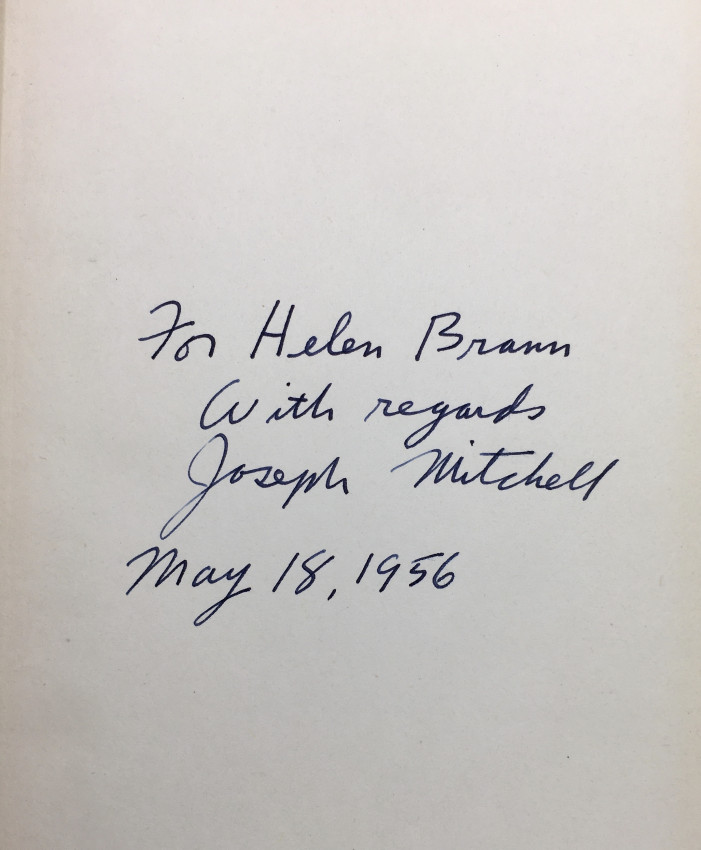 For Helen Braun
With regards
Joseph Mitchell
May 18, 1956